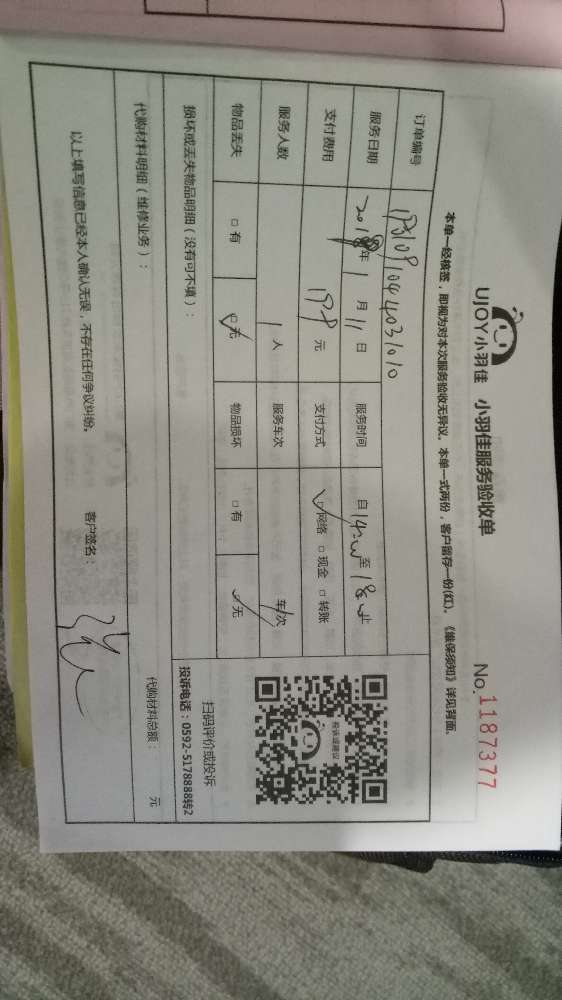 UJOY小羽佳 小羽佳服务验收单 No.1187377
本单一经核签，即视为对本次服务验收无异议，本单一式两份，客户留存一份(红)。《维保须知》详见背面.
订单编号
服务日期 年 1 月 11 日 服务时间 自 至
支付费用 元 支付方式 □网络 □现金 □转账
服务人数 1 人 服务车次 车/次
物品丢失 □有 □无 物品损坏 □有 □无
扫码评价或投诉
投诉电话：0592-5178888转2
投诉或建议
损坏或丢失物品明细（没有可不填）：
代购材料明细（维修业务）： 代购材料总额： 元
以上填写信息已经本人确认无误，不存在任何争议纠纷。 客户签名：